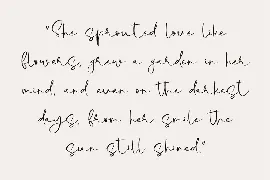 "She sprouted love like
flowers, grew a garden in her
mind, and even on the darkest
days, from her smile the
sun still shined."